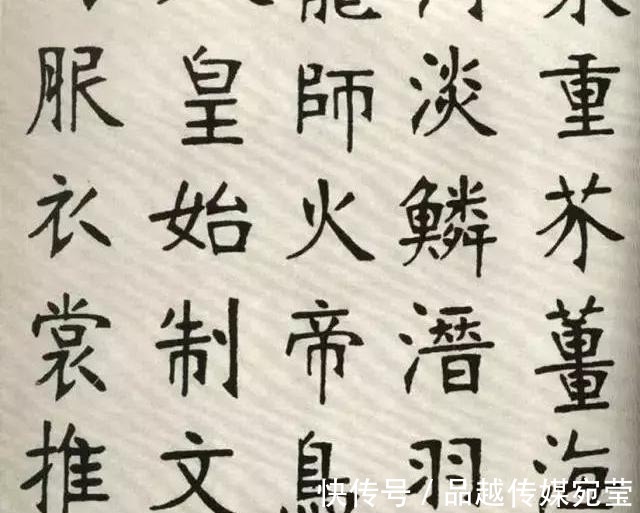 重芥薑海
河淡鱗潛羽
龍師火帝鳥
皇始制文
服衣裳推
快传号 / 品越传媒宛莹